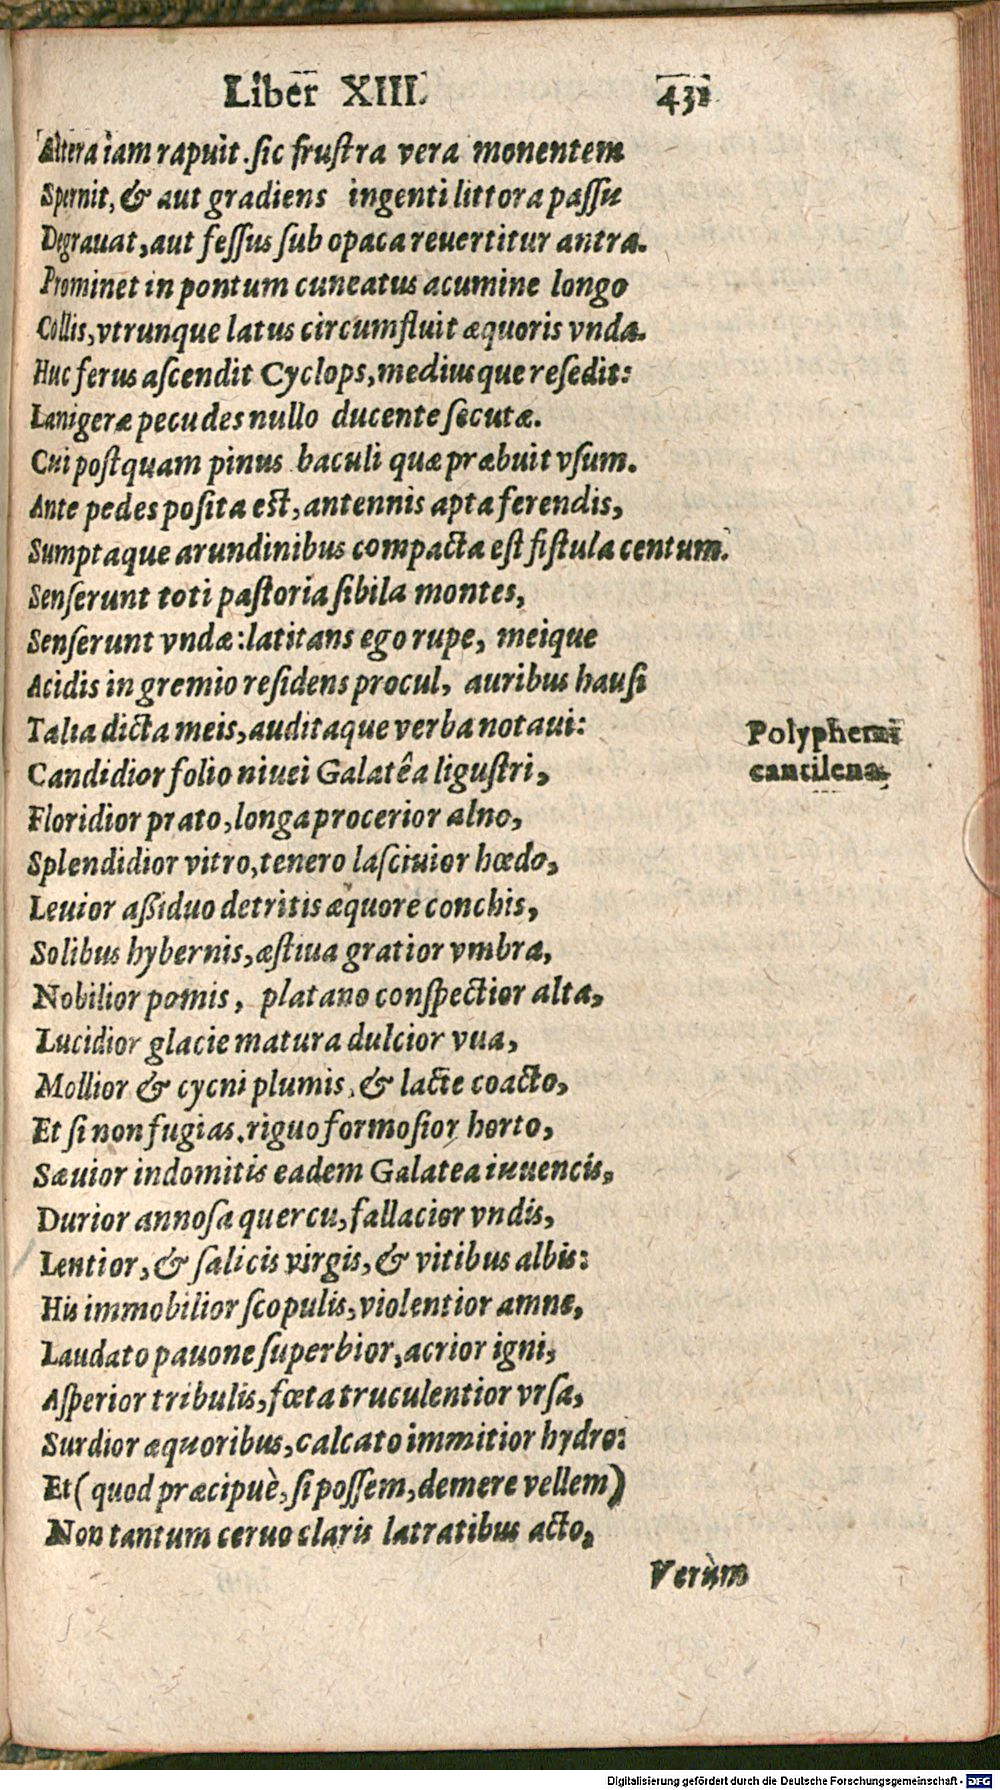 Liber XIII. 431
Altera iam rapuit. sic frustra vera monentem
Spernit, & aut gradiens ingenti littora passu
Degrauat, aut fessus sub opaca reuertitur antra.
Prominet in pontum cuneatus acumine longo
Collis, vtrunque latus circumfluit æquoris vnda.
Huc ferus ascendit Cyclops, mediusque resedit:
Lanigeræ pecudes nullo ducente secutæ.
Cui postquam pinus baculi quæ præbuit vsum.
Ante pedes posita est, antennis apta ferendis,
Sumptaque arundinibus compacta est fistula centum.
Senserunt toti pastoria sibila montes,
Senserunt vndæ: latitans ego rupe, meique
Acidis in gremio residens procul, auribus hausi
Talia dicta meis, auditaque verba notaui:
Polyphemi
cantilena.
Candidior folio niuei Galatêa ligustri,
Floridior prato, longa procerior alno,
Splendidior vitro, tenero lasciuior hœdo,
Leuior aßiduo detritis æquore conchis,
Solibus hybernis, æstiua gratior vmbra,
Nobilior pomis, platano conspectior alta,
Lucidior glacie matura dulcior vua,
Mollior & cycni plumis, & lacte coacto,
Et si non fugias, riguo formosior horto,
Sæuior indomitis eadem Galatea iuuencis,
Durior annosa quercu, fallacior vndis,
Lentior, & salicis virgis, & vitibus albis:
His immobilior scopulis, violentior amne,
Laudato pauone superbior, acrior igni,
Asperior tribulis, fœta truculentior vrsa,
Surdior æquoribus, calcato immitior hydro:
Et (quod præcipuè, si possem, demere vellem)
Non tantum ceruo claris latratibus acto,
Verùm
Digitalisierung gefördert durch die Deutsche Forschungsgemeinschaft - DFG